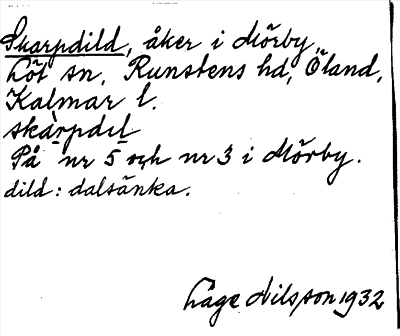 Skarpdild, åker i Mörby,
Löt sn, Runstens hd, Öland,
Kalmar l.
skàrpdil
På nr 5 och nr 3 i Mörby.
dild: dalsänka.
Låge Nilsson 1932